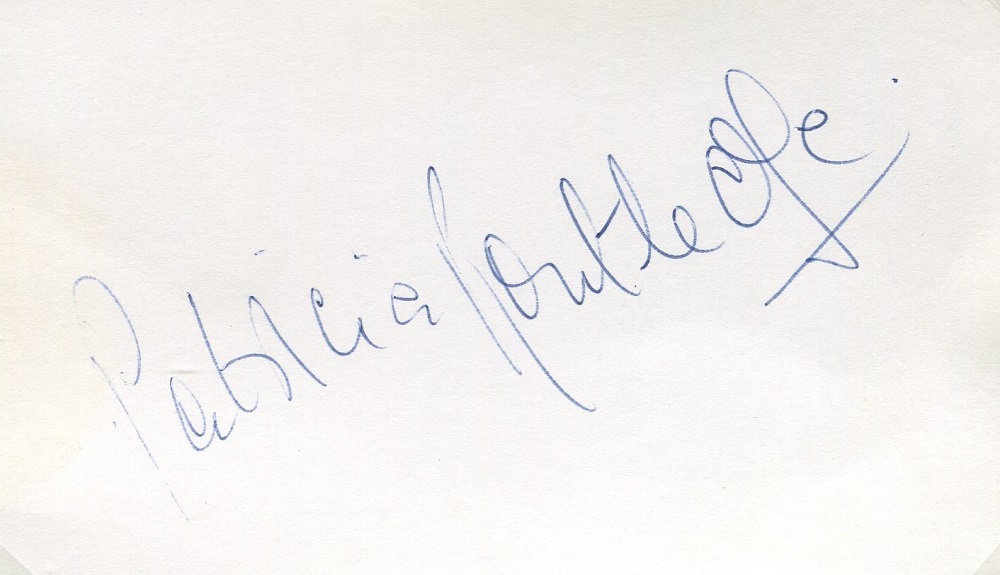 Patricia Routledge